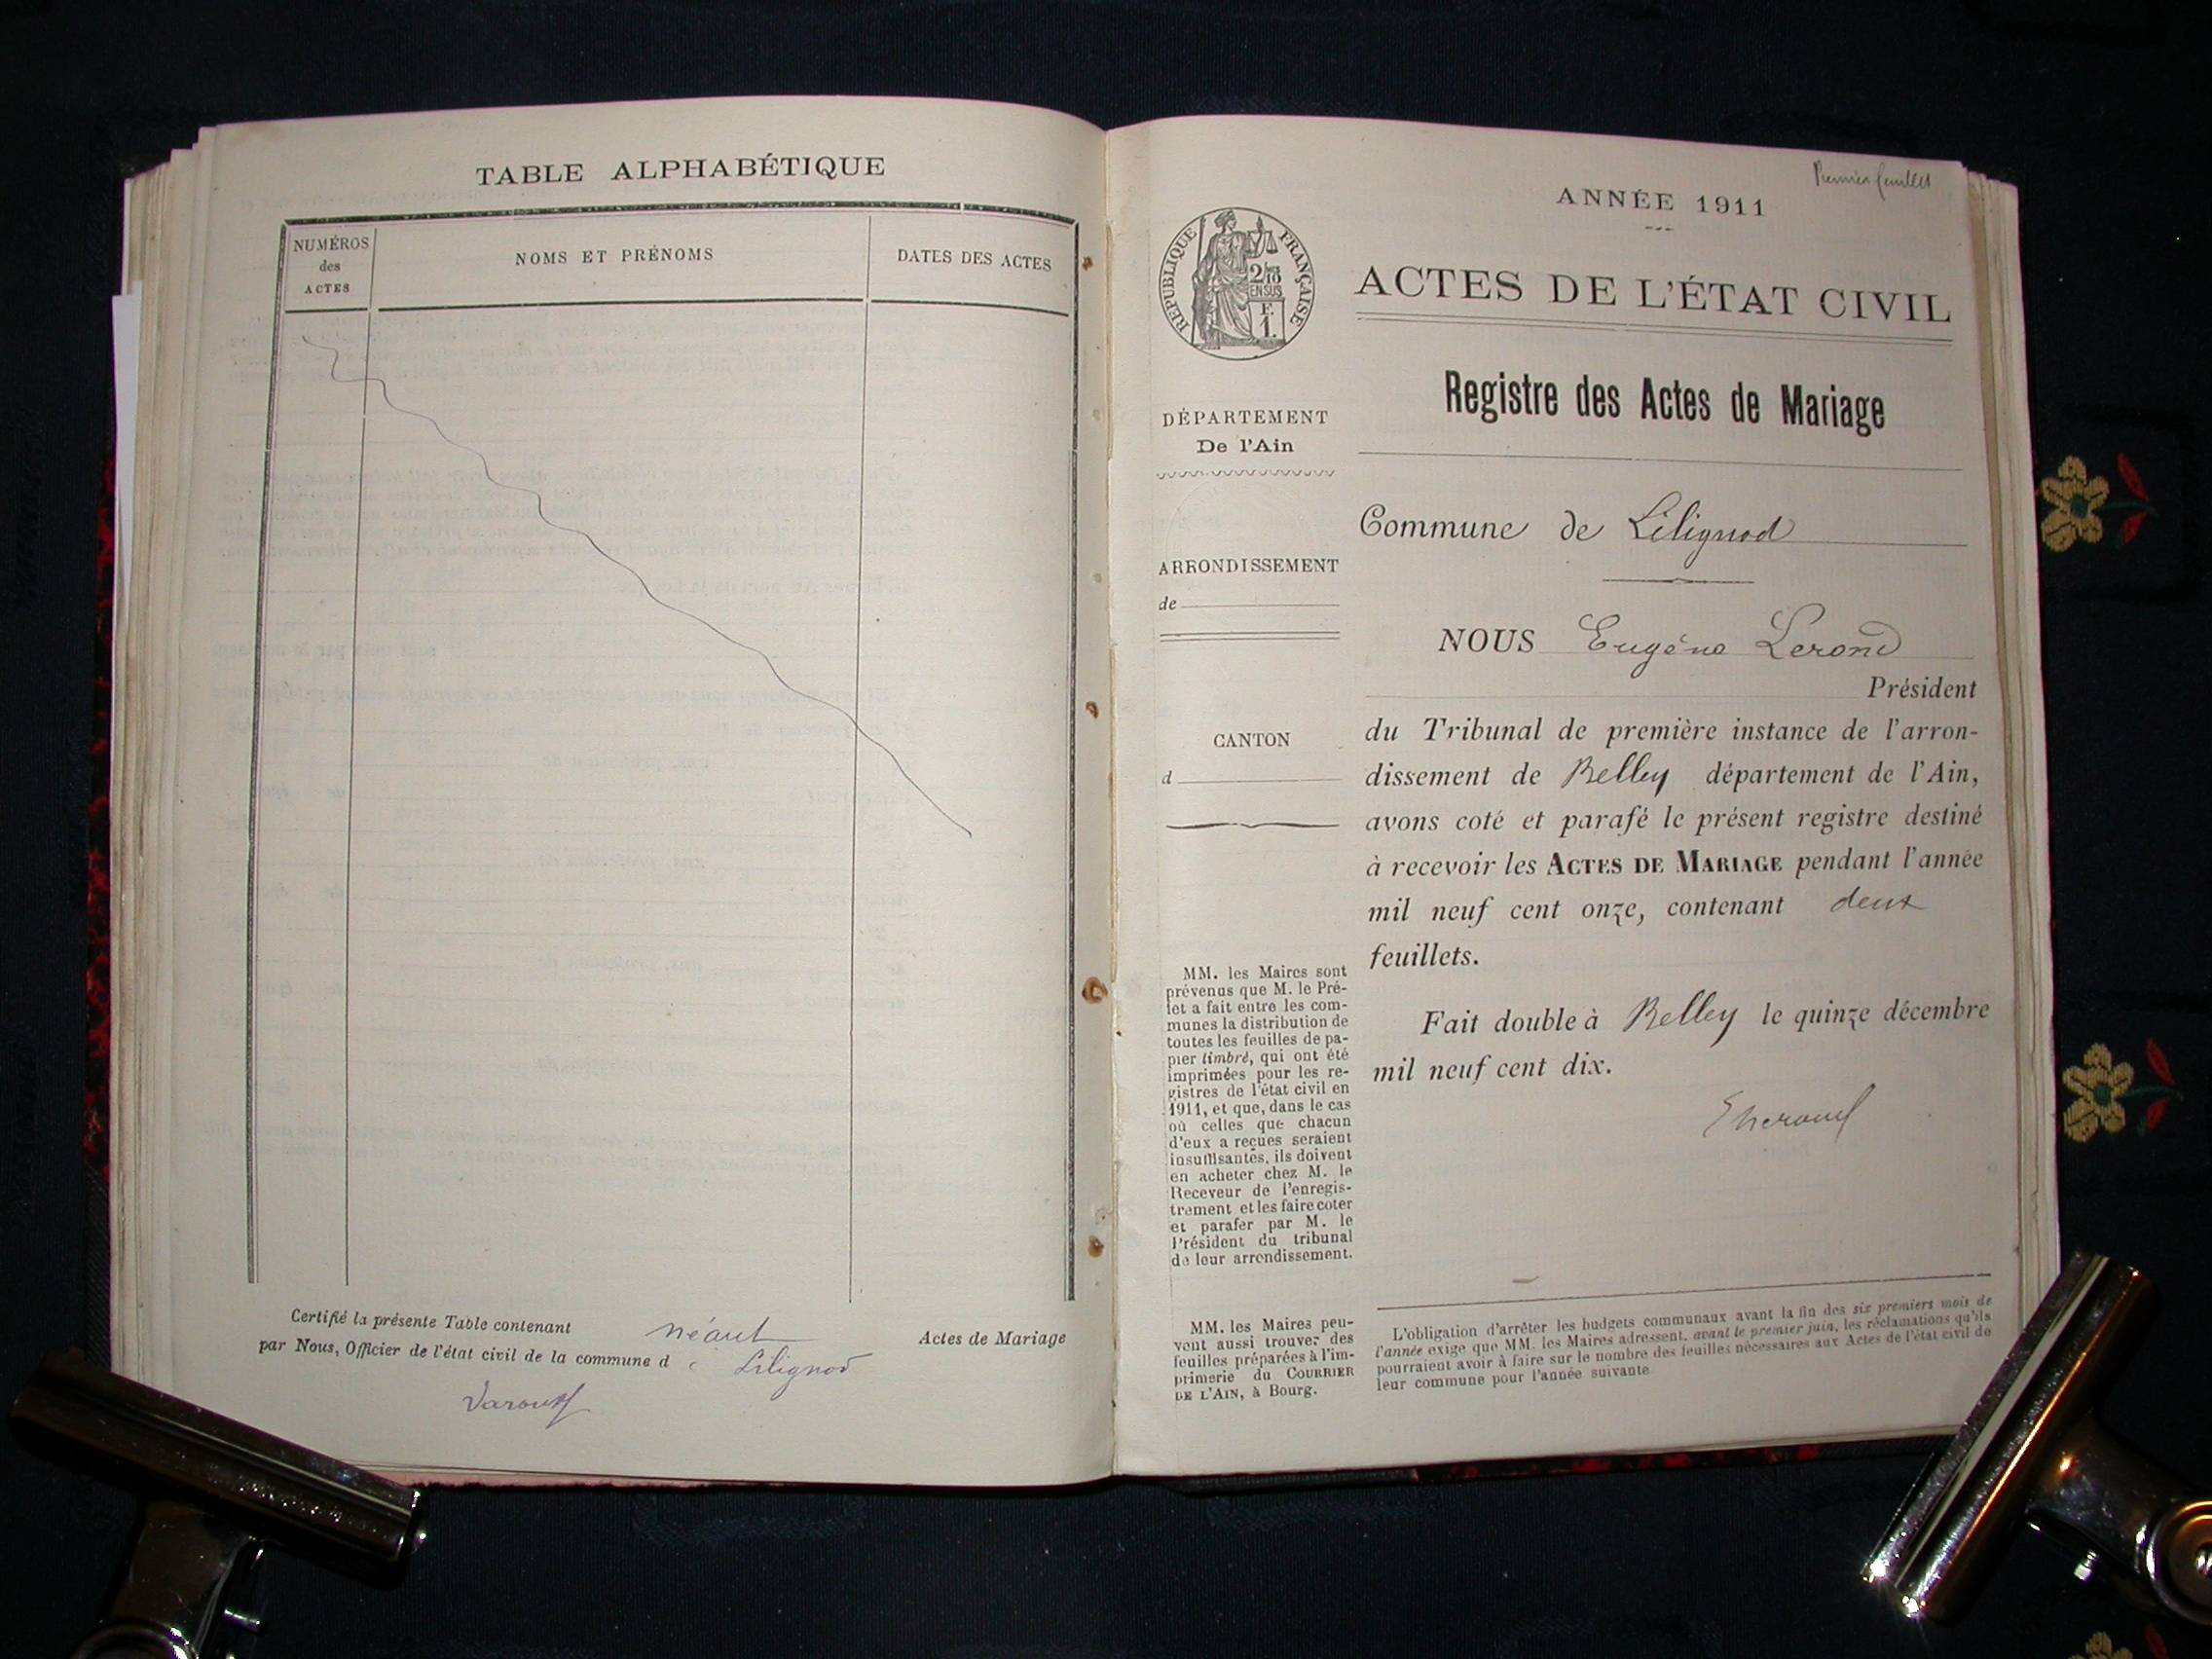 TABLE ALPHABÉTIQUE
NUMÉROS
des
ACTES
NOMS ET PRÉNOMS
DATES DES ACTES
Certifié la présente Table contenant néant Actes de Mariage
par Nous, Officier de l'état civil de la commune d e Lilignod
Premier feuillet
ANNÉE 1911
RÉPUBLIQUE FRANÇAISE
2/10
EN SUS
F.
1.
ACTES DE L'ÉTAT CIVIL
Registre des Actes de Mariage
DÉPARTEMENT
De l'Ain
ARRONDISSEMENT
de
CANTON
d
MM. les Maires sont
prévenus que M. le Pré-
fet a fait entre les com-
munes la distribution de
toutes les feuilles de pa-
pier timbré, qui ont été
imprimées pour les re-
gistres de l'état civil en
1911, et que, dans le cas
où celles que chacun
d'eux a reçues seraient
insuffisantes, ils doivent
en acheter chez M. le
Receveur de l'enregis-
trement et les faire coter
et parafer par M. le
Président du tribunal
de leur arrondissement.
MM. les Maires peu-
vent aussi trouver des
feuilles préparées à l'im-
primerie du COURRIER
DE L'AIN, à Bourg.
Commune de Lilignod
NOUS Eugène Lerond
Président
du Tribunal de première instance de l'arron-
dissement de Belley département de l'Ain,
avons coté et parafé le présent registre destiné
à recevoir les ACTES DE MARIAGE pendant l'année
mil neuf cent onze, contenant deux
feuillets.
Fait double à Belley le quinze décembre
mil neuf cent dix.
L'obligation d'arrêter les budgets communaux avant la fin des six premiers mois de
l'année exige que MM. les Maires adressent, avant le premier juin, les réclamations qu'ils
pourraient avoir à faire sur le nombre des feuilles nécessaires aux Actes de l'état civil de
leur commune pour l'année suivante